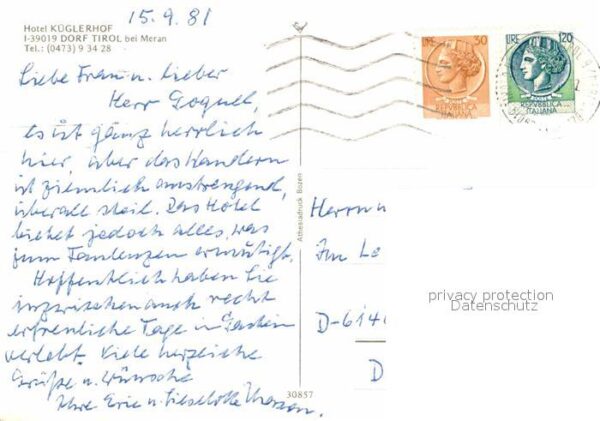 15.9.81
Hotel KÜGLERHOF
I-39019 DORF TIROL bei Meran
Tel.: (0473) 9 34 28
Liebe Frau u. lieber
Herr Goquel,
es ist ganz herrlich
hier, aber das Wandern
ist ziemlich anstrengend,
überall steil. Das Hotel
bietet jedoch alles, was
zum Faulenzen ermutigt.
Hoffentlich haben Sie
inzwischen auch recht
erfreuliche Tage in
verlebt. Viele herzliche
Grüße u. Wünsche
Ihre u. Lieselotte
LIRE 30
REPVBBLICA
ITALIANA
LIRE 120
REPVBBLICA
ITALIANA
Athesiadruck Bozen
30857
Herrn u
Im Le
D-614
D
privacy protection
Datenschutz